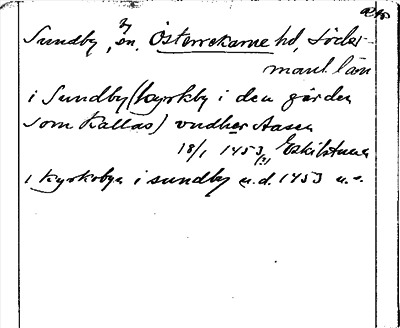 Sundby, sn, Österrekarne hd, Söder-
manl län
i Sundby (kyrkby i den gården
som kallas) vndher Aassa
18/1 1453 (?) Eskilstuna
i kyrkobyn i sundby u.d. 1453 u.s.